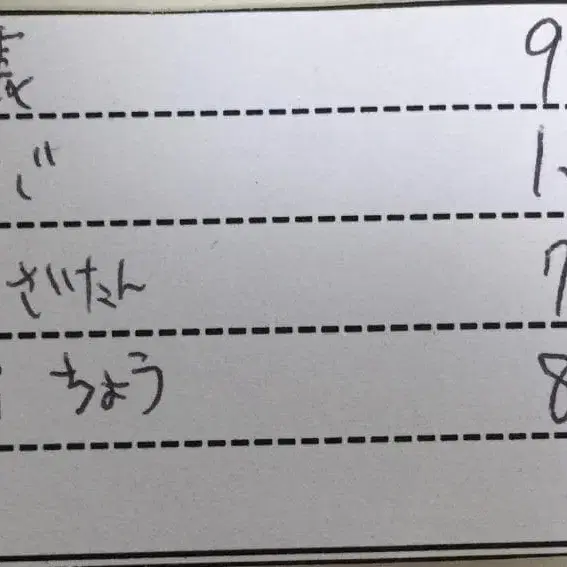 震 9
じ 1,
さいたん 7
ちょう 8